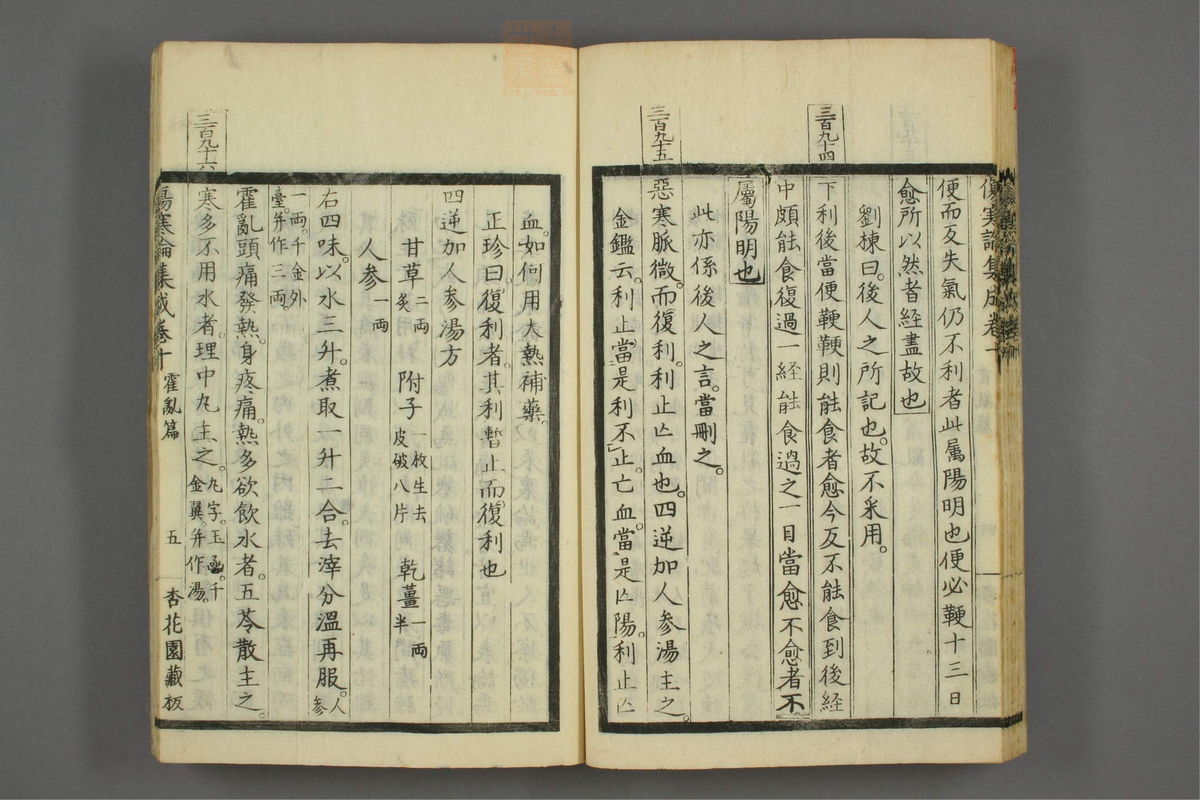 傷寒論集成卷十
便而反失氣仍不利者此属陽明也便必鞕十三日
愈所以然者經盡故也
劉棟曰。後人之所記也。故不采用。
三百九十四
下利後當便鞕鞕則能食者愈今反不能食到後經
中頗能食復過一経能食過之一日當愈不愈者不
屬陽明也
此亦係後人之言。當刪之。
三百九十五
惡寒脈微。而復利。利止亡血也。四逆加人参湯主之。
金鑑云。利止當是利不止。亡血。當是亡陽。利止亡
血。如何用大熱補藥。
正珍曰。復利者。其利暫止而。復利也
四逆加人参湯方
甘草二両炙 附子一枚生去皮破八片 乾薑一両半
人参一両
右四味。以水三升。煮取一升二合。去滓分溫再服。人参
一両。千金外臺。并作三両。
三百九十六
霍亂頭痛發熱。身疼痛。熱多欲飲水者。五苓散主之。
寒多不用水者。理中丸主之。丸字。玉函。千金翼。并作湯。
傷寒論集成卷十 霍亂篇 五 杏花園藏板